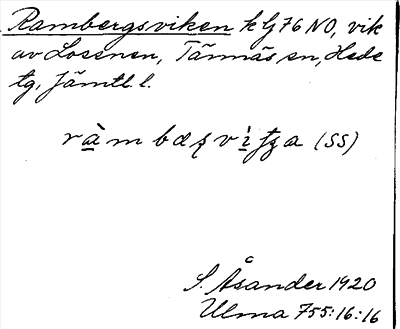 Rambergsviken k lj 76 NO, vik
av Lossnen, Tännäs sn, Hede
tg, Jämtl. l.
(SS)
S. Åsander 1920
Ulma 755:16:16